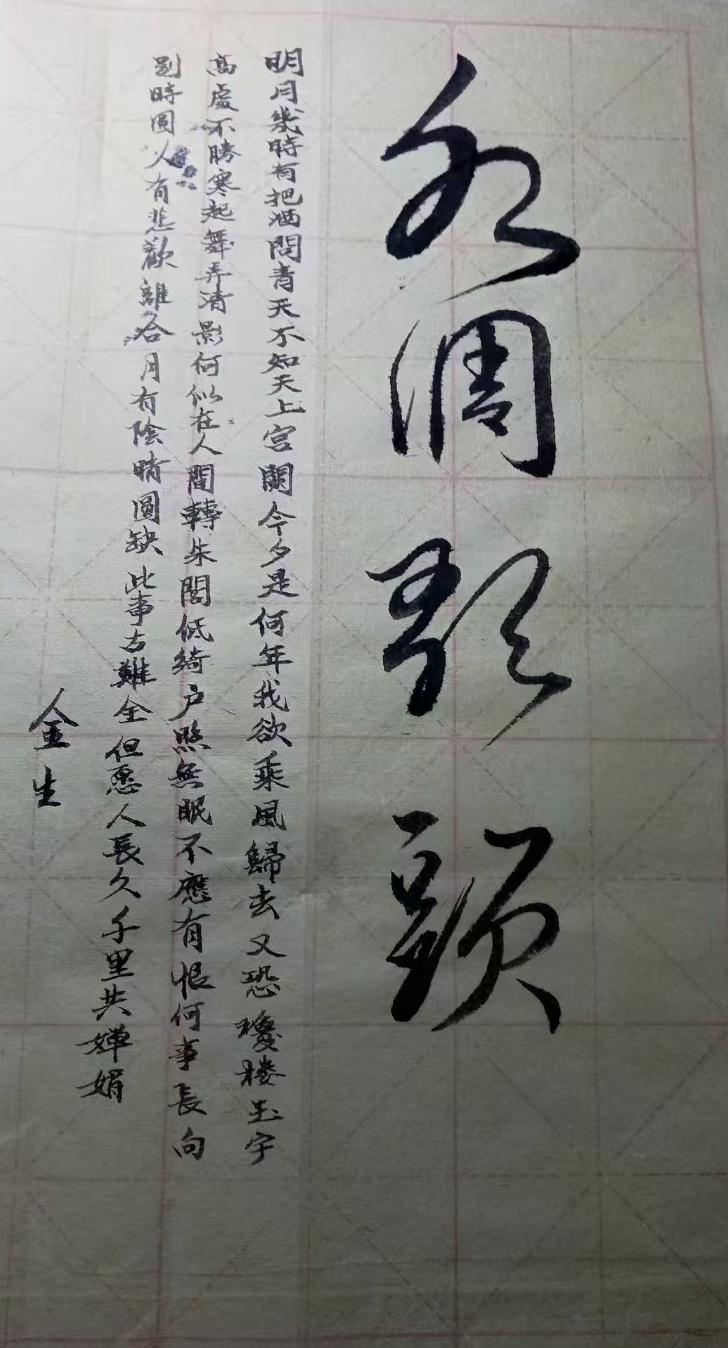 水调歌頭
明月幾時有把酒問青天不知天上宫闕今夕是何年我欲乘風歸去又恐瓊楼玉宇
高處不勝寒起舞弄清影何似在人間轉朱閣低綺户照無眠不應有恨何事長向
别時圓人有悲歡離合月有陰晴圓缺此事古難全但愿人長久千里共嬋娟
金生